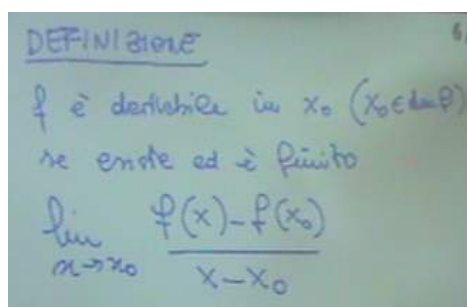 DEFINIZIONE
f è derivabile in x₀ (x₀ ∈ dom f)
se esiste ed è finito
lim x→x₀ f(x)-f(x₀) / x-x₀